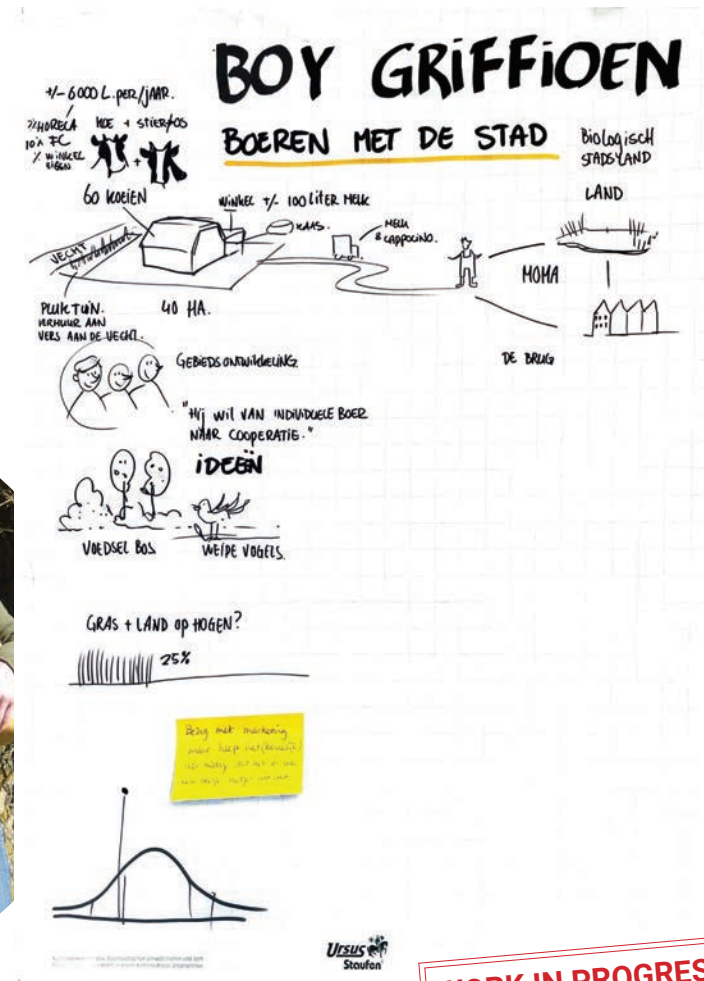 BOY GRiFFiOEN
BOEREN MET DE STAD
Biologisch
STADSLAND
+/- 6000 L. per/jAAR.
%HORECA
10% FC
% WiNKEL
KOE + STiER/OS
+
60 KOEiEN
WiNKEL +/- 100 LiTER MELK
KAAS.
MELK
& CAPPOCiNO.
LAND
VECHT
MOMA
PLUKTUiN.
VERHUUR AAN
VERS AAN DE VECHT.
40 HA.
DE BRUG
GEBiEDSONTWiKKELiNG
"Hij WiL VAN iNDiViDUELE BOER
NAAR COOPERATiE."
iDEEËN
VOEDSEL BOS.
WEiDE VOGELS.
GRAS + LAND OP HOGEN?
25%
Bezig met marketing
maar heeft het
Ursus
Staufen
WORK IN PROGRES